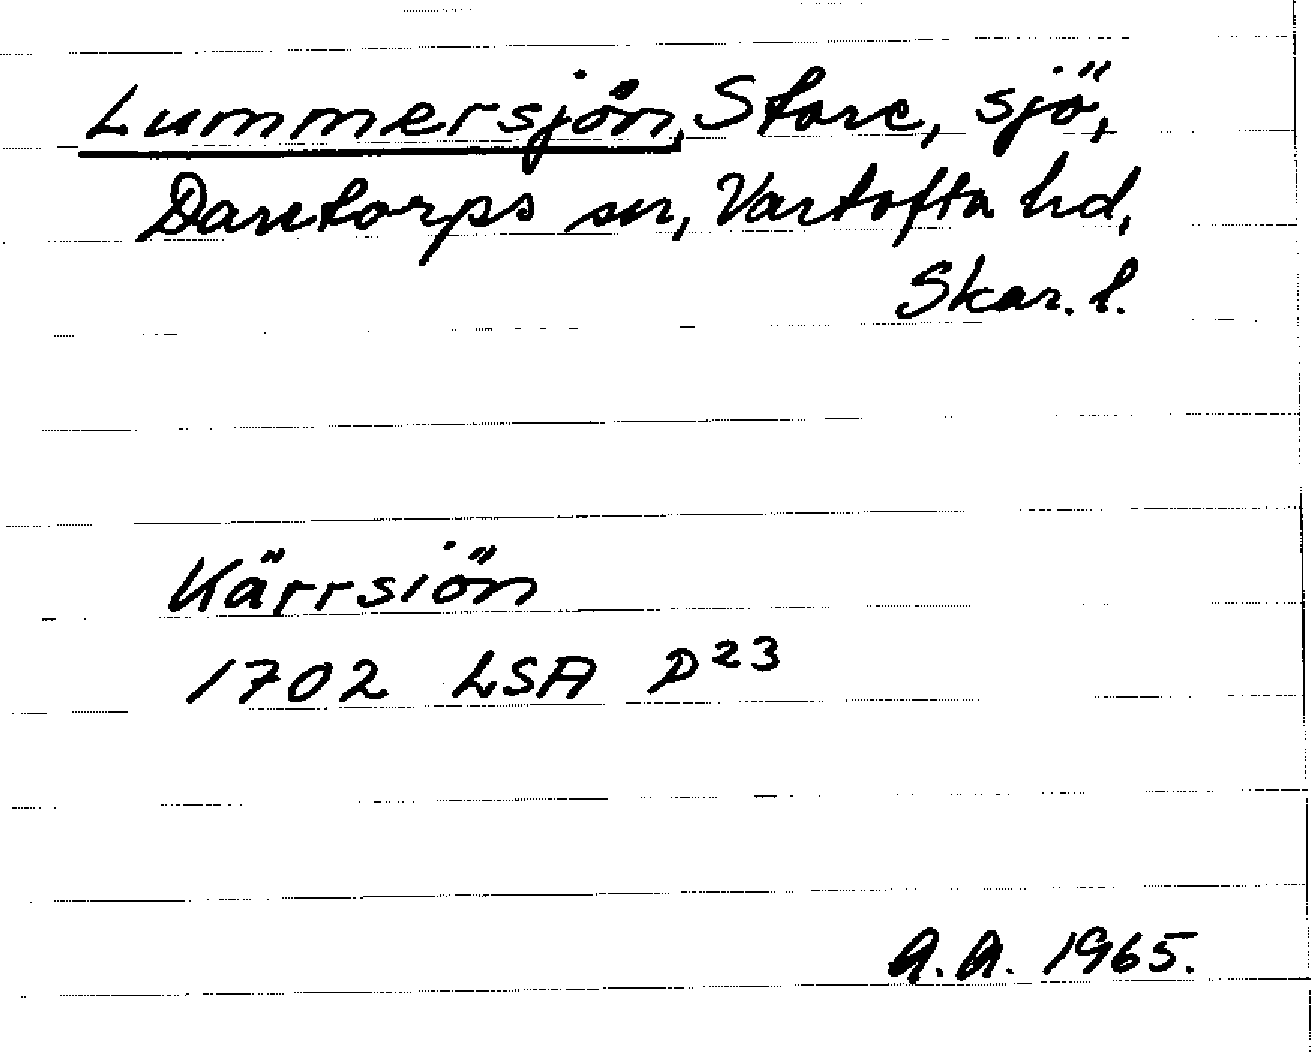 Lummersjön, Store, sjö,
Daretorps sn, Vartofta hd,
Skar. l.
Kärrsiön
1702 LSA P23
A.A. 1965.